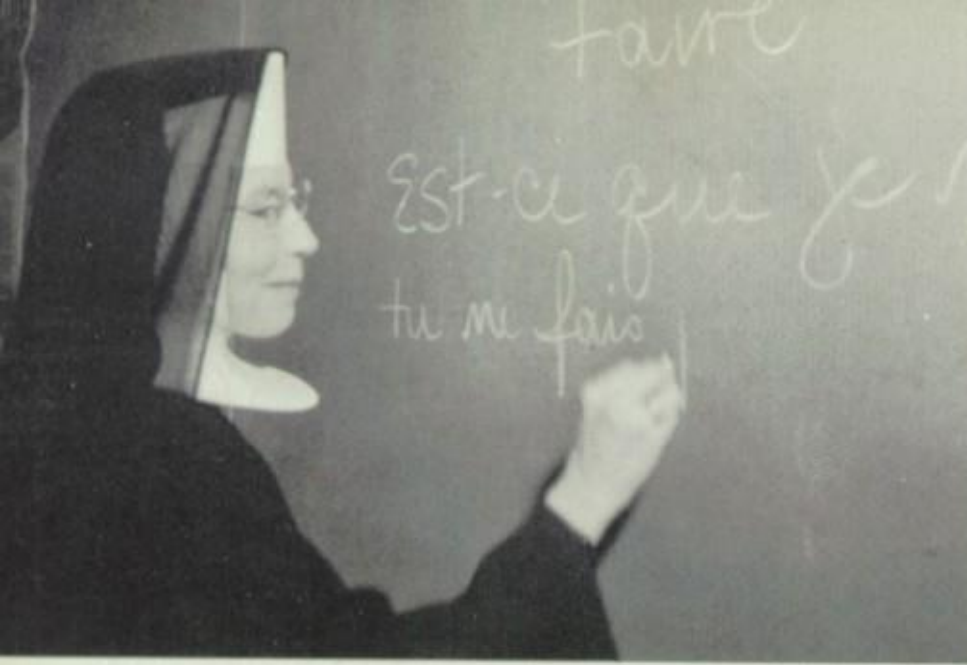 faire
Est-ce que je
tu ne fais